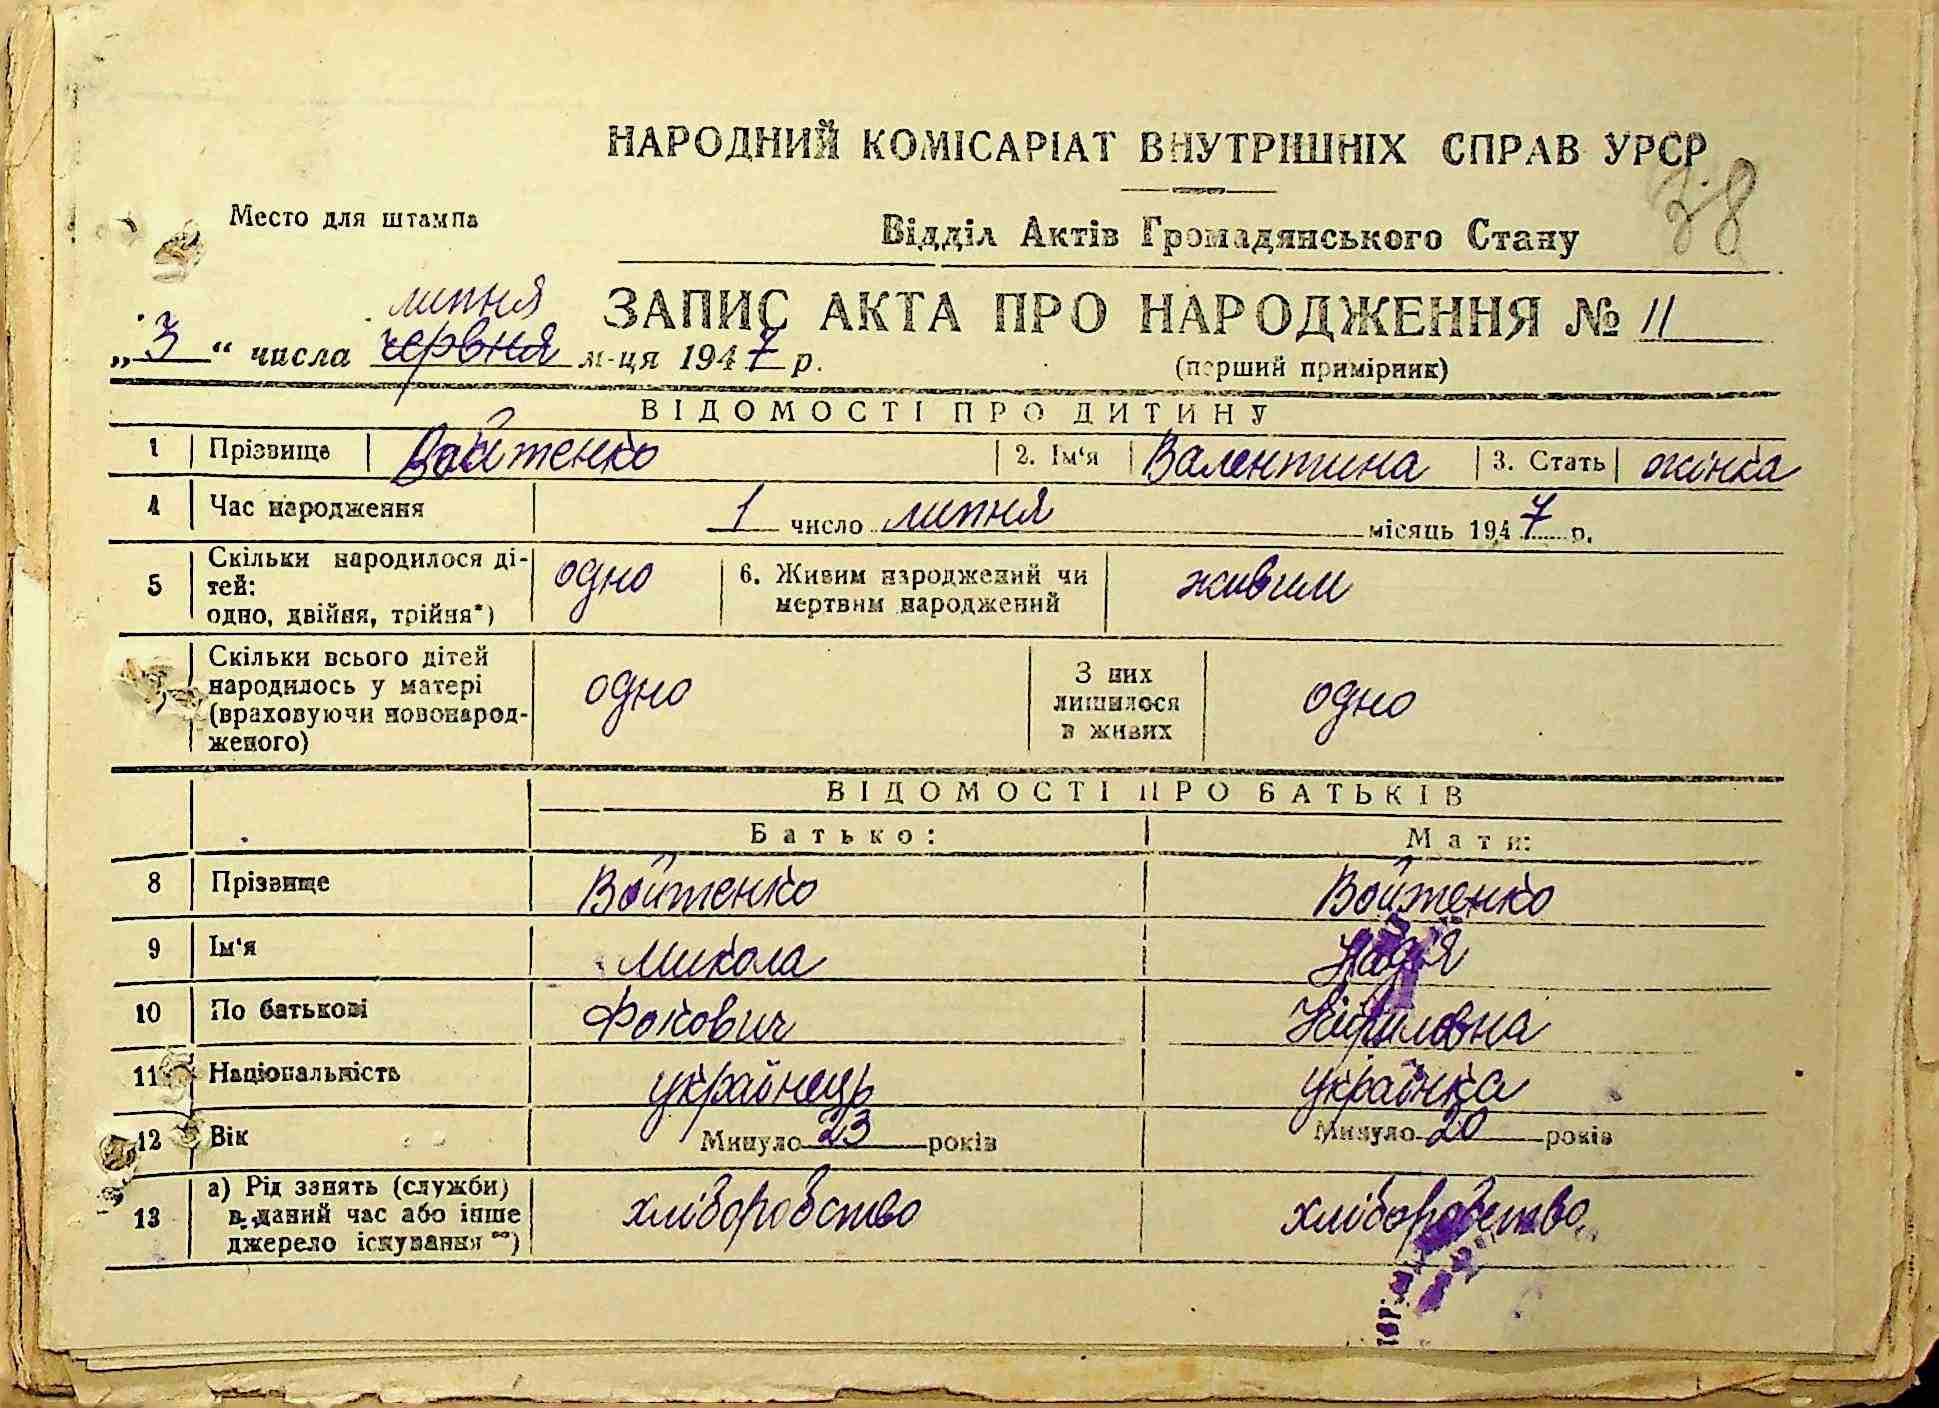 НАРОДНИЙ КОМІСАРІАТ ВНУТРІШНІХ СПРАВ УРСР
38
Место для штампа
Відділ Актів Громадянського Стану
липня
ЗАПИС АКТА ПРО НАРОДЖЕННЯ № 11
„3“ числа червня м-ця 1947 р.
(перший примірник)
ВІДОМОСТІ ПРО ДИТИНУ
1 Прізвище Войтенко 2. Ім‘я Валентина 3. Стать жінка
4 Час народження 1 число липня місяць 1947 р.
5 Скільки народилося ді-
тей:
одно, двійня, трійня*) одно 6. Живим народжений чи
мертвим народжений живим
Скільки всього дітей
народилось у матері
(враховуючи новонарод-
женого) одно З них
лишилося
в живих одно
ВІДОМОСТІ ПРО БАТЬКІВ
Батько: Мати:
8 Прізвище Войтенко Войтенко
9 Ім‘я Микола Надія
10 По батькові Фокович
11 Національність українець українка
12 Вік Минуло 23 років Минуло 20 років
13 а) Рід занять (служби)
в даний час або інше
джерело існування **) хліборобство хліборобство